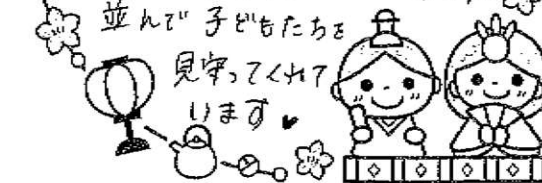 並んで 子どもたちを
見守ってくれて
います♥